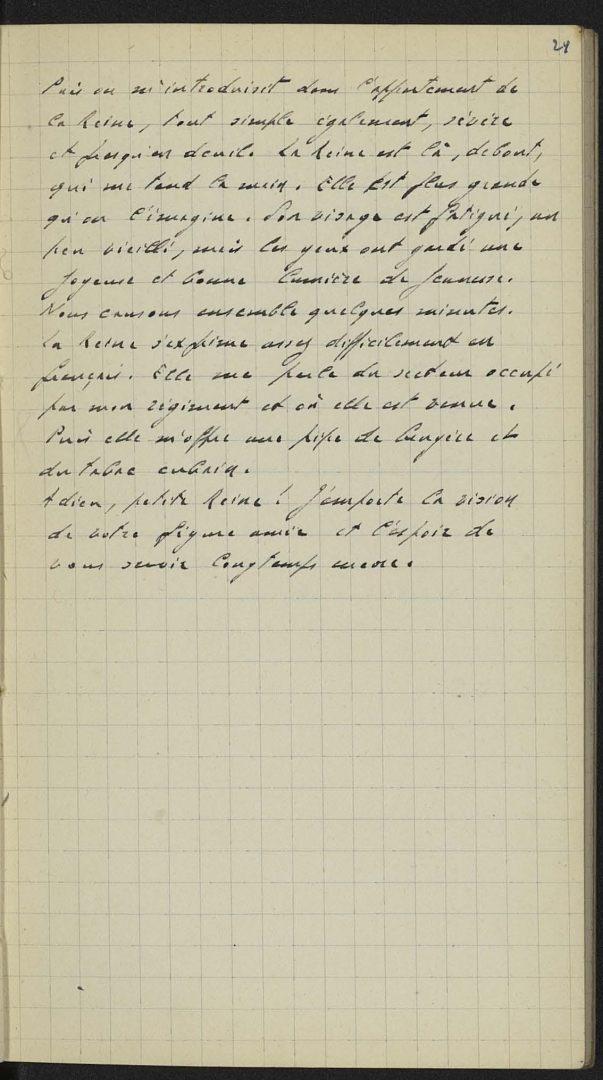 24
Puis on m'introduisit dans l'appartement de
la Reine, tout simple également, sévère
et presqu'en deuil. La Reine est là, debout,
qui me tend la main. Elle est plus grande
qu'on l'imagine. Son visage est fatigué, un
peu vieilli, mais les yeux ont gardé une
joyeuse et bonne lumière de jeunesse.
Nous causons ensemble quelques minutes.
La Reine s'exprime assez difficilement en
français. Elle me parle du secteur occupé
par mon régiment et où elle est venue.
Puis elle m'offre une pipe de bruyère et
du tabac
Adieu, petite Reine ! J'emporte la vision
de votre figure amie et l'espoir de
vous servir longtemps encore.